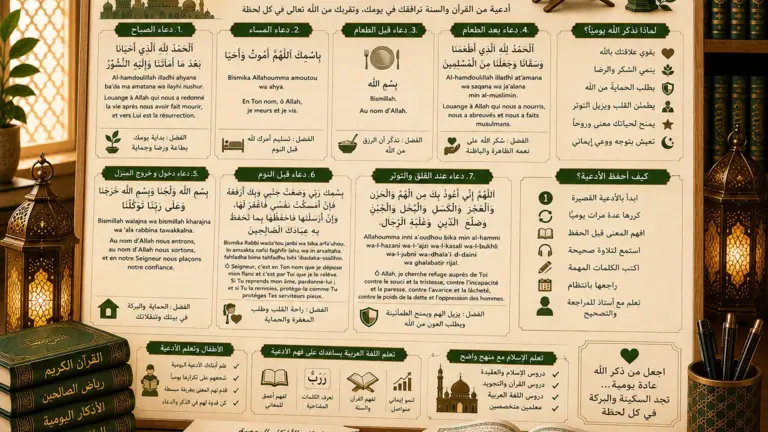 أدعية من القرآن والسنة ترافقك في يومك، وتقربك من الله تعالى في كل لحظة
1. دعاء الصباح
اَلْحَمْدُ لِلَّهِ الَّذِي أَحْيَانَا
بَعْدَ مَا أَمَاتَنَا وَإِلَيْهِ النُّشُورُ
Al-hamdoulillah illadhi ahyana
ba'da ma amatana wa ilayhi nushur.
Louange à Allah qui nous a redonné
la vie après nous avoir fait mourir,
et vers Lui est la résurrection.
الفضل: بداية يومك
بطاعة ورضا وحماية
2. دعاء المساء
بِاسْمِكَ اللَّهُمَّ أَمُوتُ وَأَحْيَا
Bismika Allahoumma amoutou
wa ahya.
En Ton nom, ô Allah,
je meurs et je vis.
الفضل: تسليم أمرك لله
قبل النوم
3. دعاء قبل الطعام
بِسْمِ اللَّه
Bismillah.
Au nom d'Allah.
الفضل: تذكّر أن الرزق
من الله
4. دعاء بعد الطعام
اَلْحَمْدُ لِلَّهِ الَّذِي أَطْعَمَنَا
وَسَقَانَا وَجَعَلَنَا مِنَ الْمُسْلِمِينَ
Al-hamdoulillah illadhi at'amana
wa saqana wa ja'alana
min al-muslimin.
Louange à Allah qui nous a nourris,
nous a abreuvés et nous a faits
musulmans.
الفضل: شكر الله على
نعمه الظاهرة والباطنة
لماذا نذكر الله يوميًا؟
يقوي علاقتك بالله
ينمي الشكر والرضا
يطلب الحماية من الله
يطمئن القلب ويزيل التوتر
يمنح لحياتك معنى وروحاً
تعيش بتوجه ووعي إيماني
5. دعاء دخول و خروج المنزل
بِسْمِ اللَّهِ وَلَجْنَا وَبِسْمِ اللَّهِ خَرَجْنَا
وَعَلَى رَبِّنَا تَوَكَّلْنَا
Bismillah walajna wa bismillah kharajna
wa 'ala rabbina tawakkalna.
Au nom d'Allah nous entrons,
au nom d'Allah nous sortons,
et en notre Seigneur nous plaçons
notre confiance.
الفضل: الحماية والبركة
في بيتك وتنقلاتك
6. دعاء قبل النوم
بِسْمِكَ رَبِّي وَضَعْتُ جَنْبِي وَبِكَ أَرْفَعُهُ
فَإِنْ أَمْسَكْتَ نَفْسِي فَاغْفِرْ لَهَا،
وَإِنْ أَرْسَلْتَهَا فَاحْفَظْهَا بِمَا تَحْفَظُ
بِهِ عِبَادَكَ الصَّالِحِينَ
Bismika Rabbi wada'tou janbi wa bika arfa'ouhou.
In amsakta nafsi faghfir laha wa in arsaltaha
fahfadha bima tahfadhu bihi 'ibadaka-ssalihin.
Ô Seigneur, c'est en Ton nom que je dépose
mon flanc et c'est par Toi que je le relève.
Si Tu reprends mon âme, pardonne-lui ; et
si Tu la renvoies, protège-la comme Tu
protèges Tes serviteurs pieux.
الفضل: راحة القلب وطلب
المغفرة والحماية
7. دعاء عند القلق والتوتر
اَللَّهُمَّ إِنِّي أَعُوذُ بِكَ مِنَ الْهَمِّ وَالْحَزَنِ
وَالْعَجْزِ وَالْكَسَلِ وَالْبُخْلِ وَالْجُبْنِ
وَضَلَعِ الدَّيْنِ وَغَلَبَةِ الرِّجَالِ.
Allahoumma inni a'oudhou bika min al-hammi
wa-l-hazani wa-l-'ajzi wa-l-kasali wa-l-bukhli
wa-l-jubni wa-dhala'i d-daini
wa ghalabatir rijal.
Ô Allah, je cherche refuge auprès de Toi
contre le souci et la tristesse, contre l'incapacité
et la paresse, contre l'avarice et la lâcheté,
contre le poids de la dette et l'oppression des hommes.
الفضل: يزيل الهم ويمنح الطمأنينة
ويطلب العون من الله
كيف أحفظ الأدعية؟
1 ابدأ بالأدعية القصيرة
كررها عدة مرات يوميًا
افهم المعنى قبل الحفظ
استمع لتلاوة صحيحة
اكتب الكلمات المهمة
راجعها بانتظام
تعلم مع أستاذ للمراجعة
والتصحيح
الأطفال وتعلم الأدعية
علم أبنائك الأدعية اليومية
شجعهم على تكرارها يومياً
قدم لهم المعنى بطريقة مبسطة
كن قدوة لهم في الذكر والدعاء
تعلم اللغة العربية يساعدك على فهم الأدعية
لفهم أعمق
للمعاني
تعرف الكلمات
المفتاحية
لفهم القرآن
والسنة
لنمو إيماني
متواصل
تعلم الإسلام مع منهج واضح
دروس الإسلام والعقيدة
دروس القرآن والتجويد
دروس اللغة العربية
معلمين متخصصين
اجعل من ذكر الله
عادة يومية...
تجد السكينة والبركة
في كل لحظة
القرآن الكريم
رياض الصالحين
الأذكار اليومية